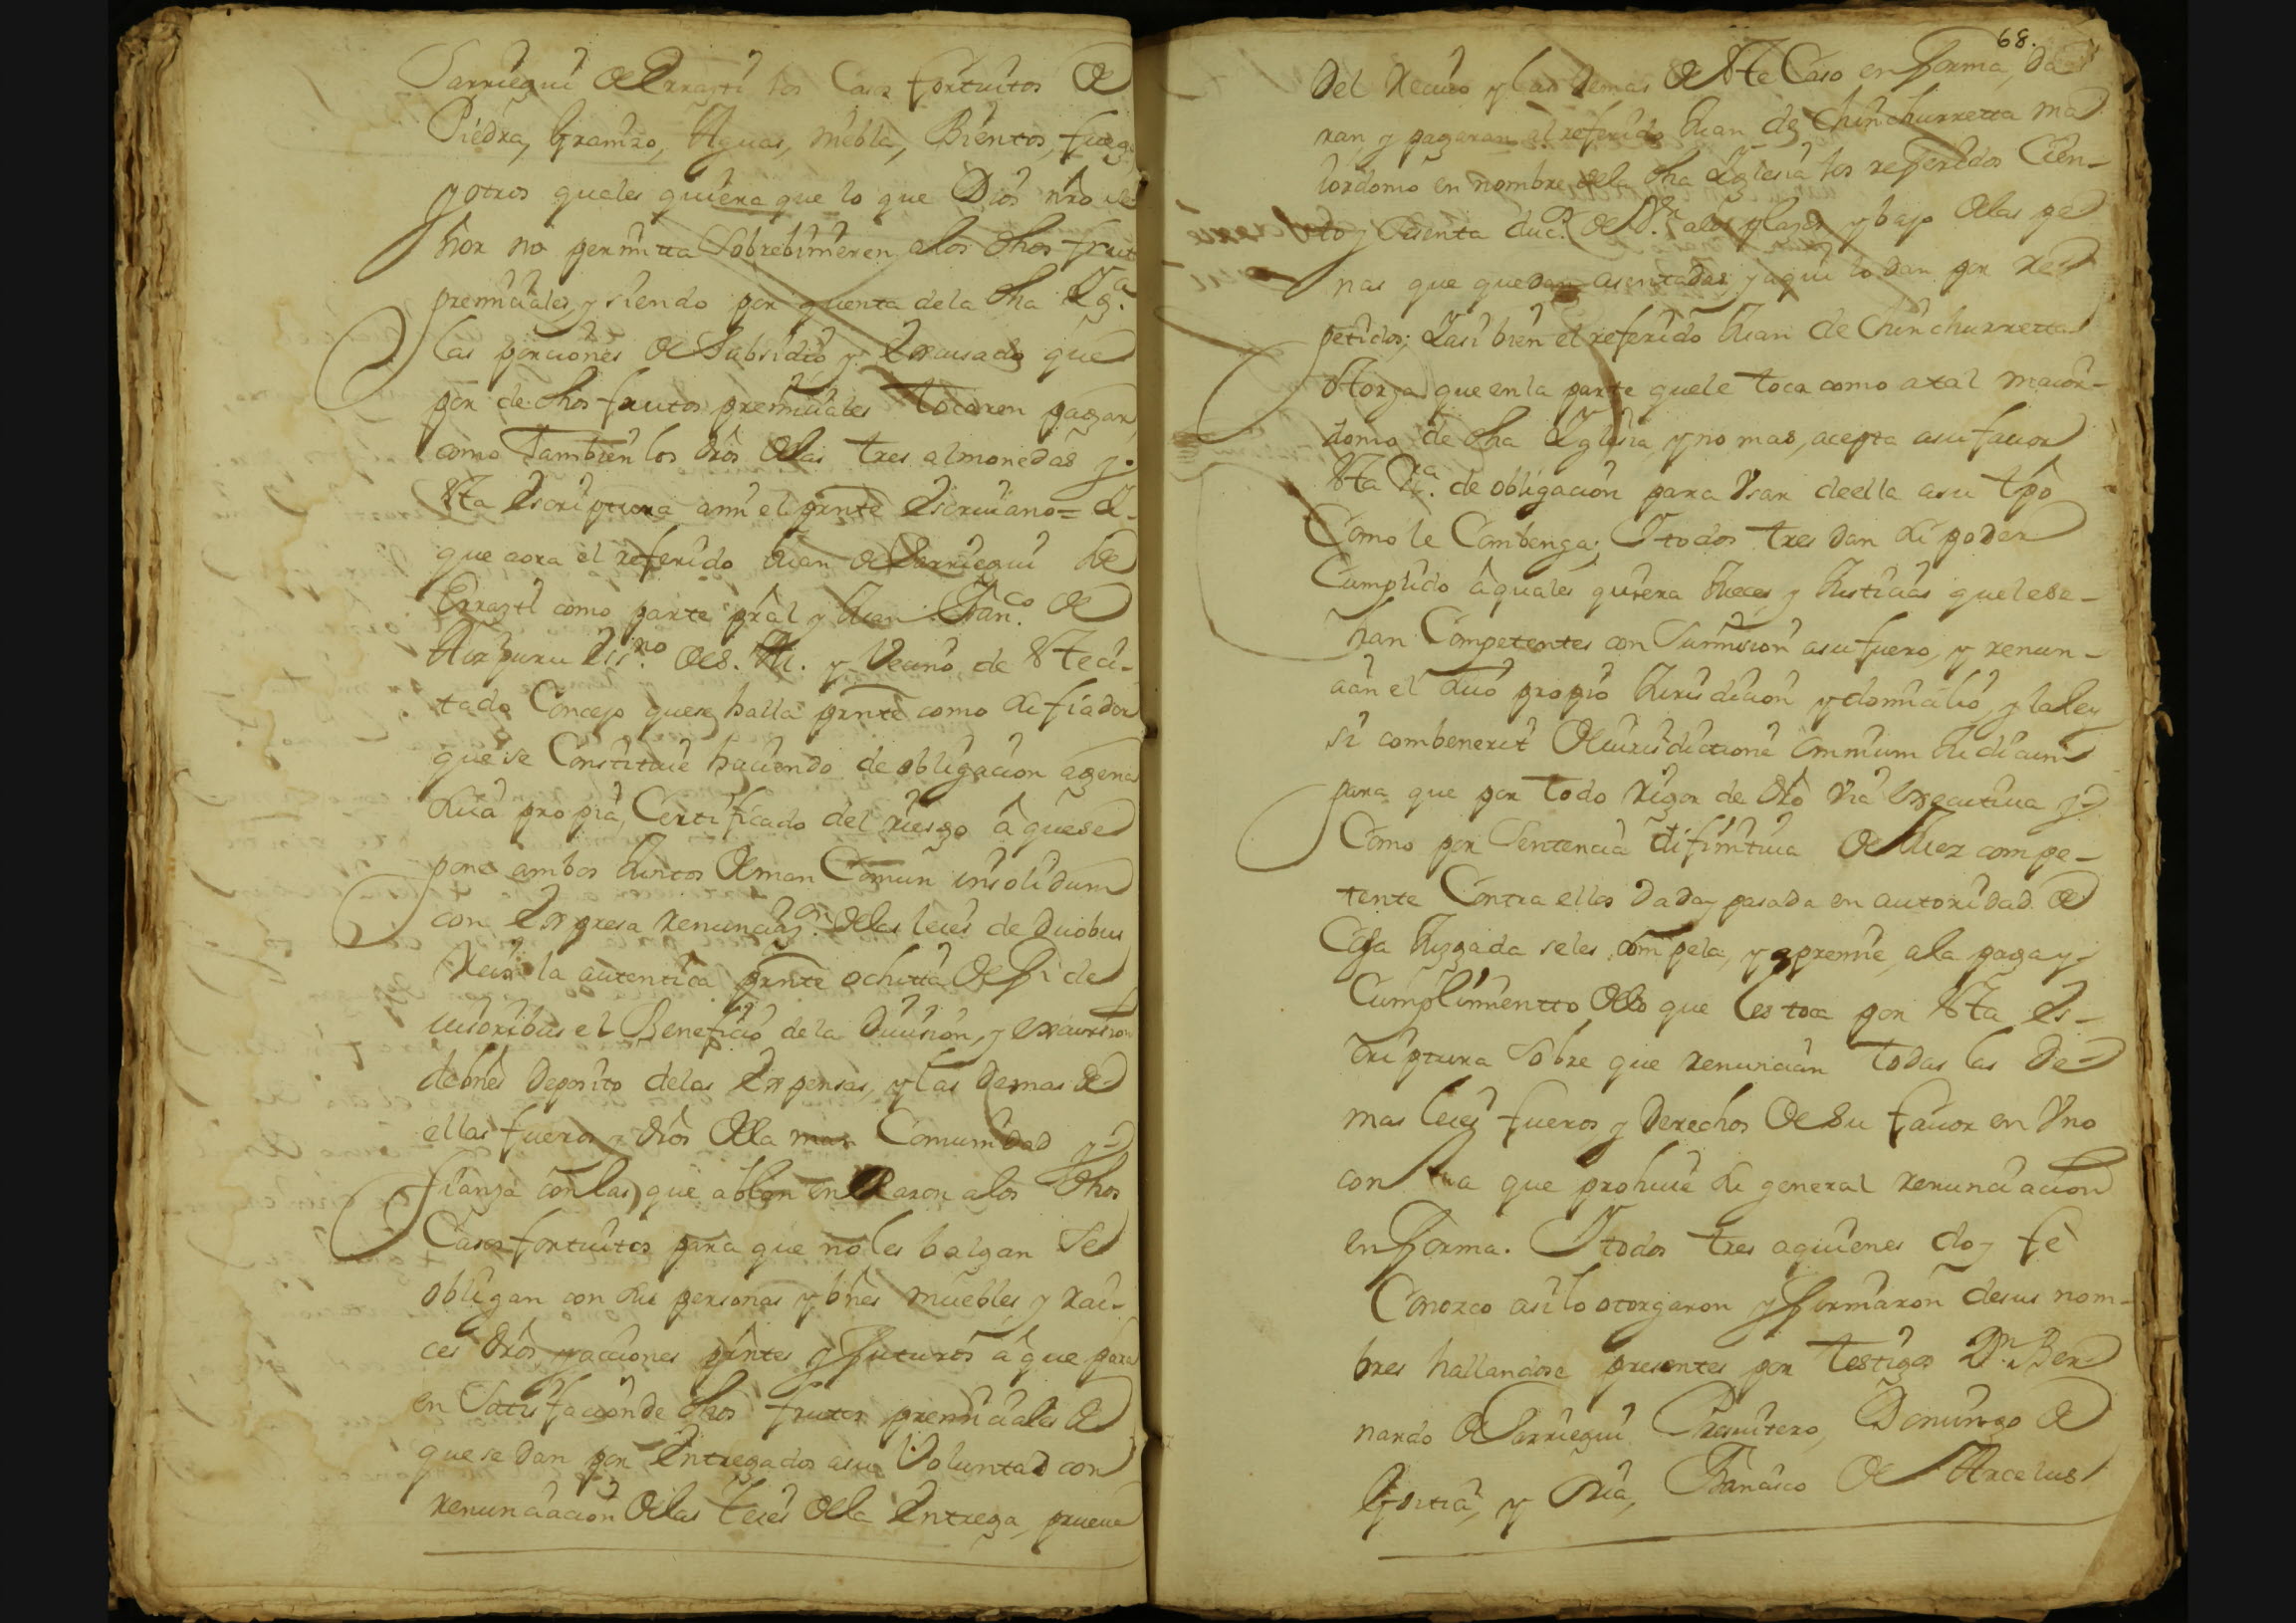 Sarriegui de Errazti los Casos fortuitos de
Piedra, Granizo, Aguas, niebla, Bientos, fuego
y otros quales quiera que lo que Dios nro se
ñor no permitta Sobrebinieren a los dhos frut
premiciales, y siendo por quenta de la dha Igª
las porciones de Subsidio y Excusado que
por de dhos frutos premiciales tocaren pagar
como Tambien los dros de las tres almonedas y
esta Escriptura ami el preste Escriuano = I
que aora el referido Juan de Sarriegui de
Errazti como parte pral y Juan Franco de
Aizpuru Essno de S. M. y Vecino de este ci-
tado Concejo que se halla preste como su fiador
que se Constituie haciendo de obligacion agena
suia propia, Certificado del riesgo â que se
pone ambos Juntos de man Comun insolidum
con Expresa renunciazon de las leies de duobus
Reis la autentica preste ochitta de fide
iusoribus el Beneficio de la Diuision, y excursion
de bnes Deposito de las Expensas, y las demas de
ellas fueros y dros de la man Comunidad y
fianza con las que ablan en Razon a los dhos
Casos fortuitos para que no les balgan se
obligan con sus personas y bnes muebles y rai-
ces dros y acciones prtes y futuros a que para
en Satisfacion de dhos frutos premiciales de
que se dan por Entregados a su Voluntad con
renunciacion de las leies de la Entrega, prueua
68.
del Reciuo y las demas de este Caso en forma, da
ran y pagaran al referido Juan de Chinchurretta ma
iordomo en nombre de la dha Iglesia los referidos Cien-
to y Sesenta ducs de Vn a los plazos y bajo de las pe
nas que quedan asentadas y aqui lo dan por re
petidos; I asi bien el referido Juan de Chinchurretta
otorga que en la parte que le toca como a tal maior-
domo de dha Iglesia y no mas, acepta a su fauor
esta Esra de obligacion para Vsar de ella a su tpo
Como le Conbenga; I todos tres dan su poder
Cumplido â quales quiera Jueces y Justicias que le se-
han Competentes con Sumision a su fuero, y renun-
cian el suio propio Jurisdicion y domicilio, y la ley
si combenerit de iurisdictione omnium Judicum
para que por todo rigor de dro via executiua y
Como por Sentencia difinitiua de Juez compe-
tente Contra ellos Dada y pasada en autoridad de
Cosa Juzgada se les compela, y apremie, a la paga y
Cumplimientto de lo que les toca por esta Es-
criptura Sobre que renuncian todas las de
mas leies fueros y Derechos de su fauor en Vno
con la que prohiue la general renunciacion
en forma. I todos tres a quienes doy fê
Conozco asi lo otorgaron y firmaron de sus nom-
bres hallandose presentes por testigos Dn Ber
nardo de Sarriegui Presuitero, Domingo de
Goitia, y Ria, Francisco de Arcelus